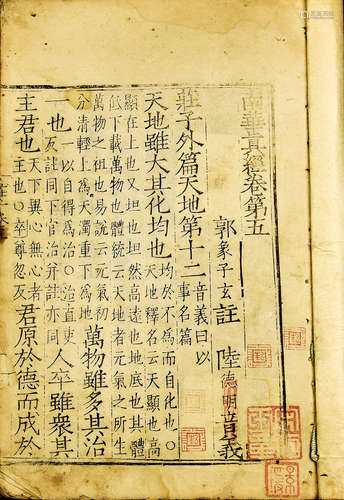 南華真經卷第五
郭象子玄註 陸德明音義
莊子外篇天地第十二 音義曰以事名篇
天地雖大其化均也 均於不為而自化也○天地釋名云天顯也高
顯在上也又坦也坦然高遠也地底也其體
低下載萬物也禮統云天地者元氣之所生
萬物之祖也易說云元氣初
分清輕上為天濁重下為地 萬物雖多其治
一也 一以自得為治○治直吏反註同下官治并註亦同 人卒雖眾其
主君也 天下異心無心者主也○卒尊忽反 君原於德而成於